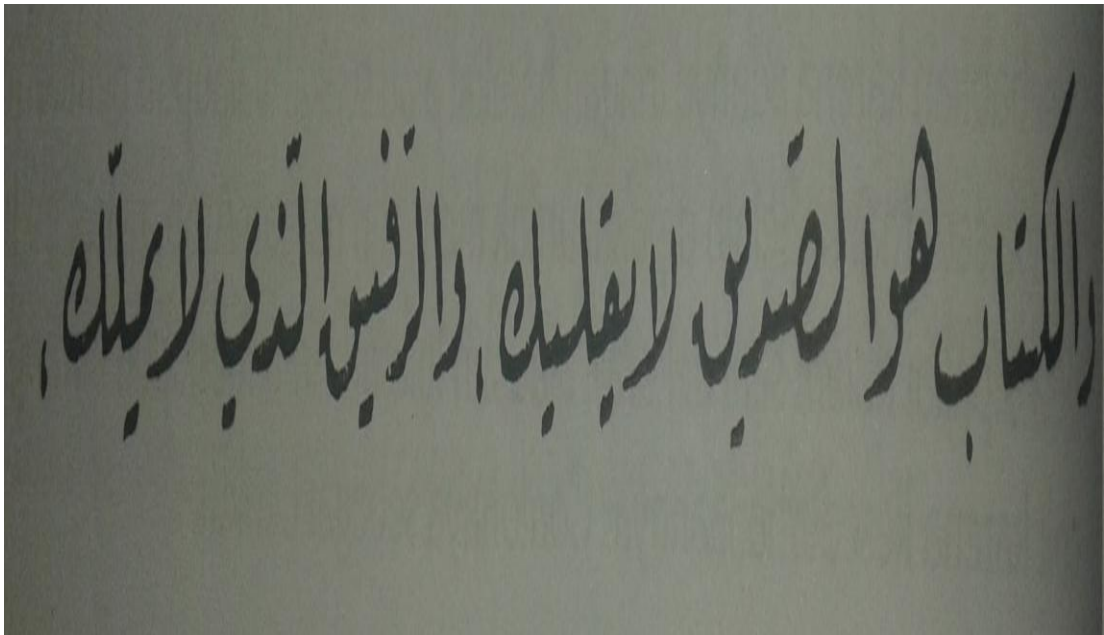 والكتاب هو الصديق لا يقليك، والرفيق الذي لا يملك،